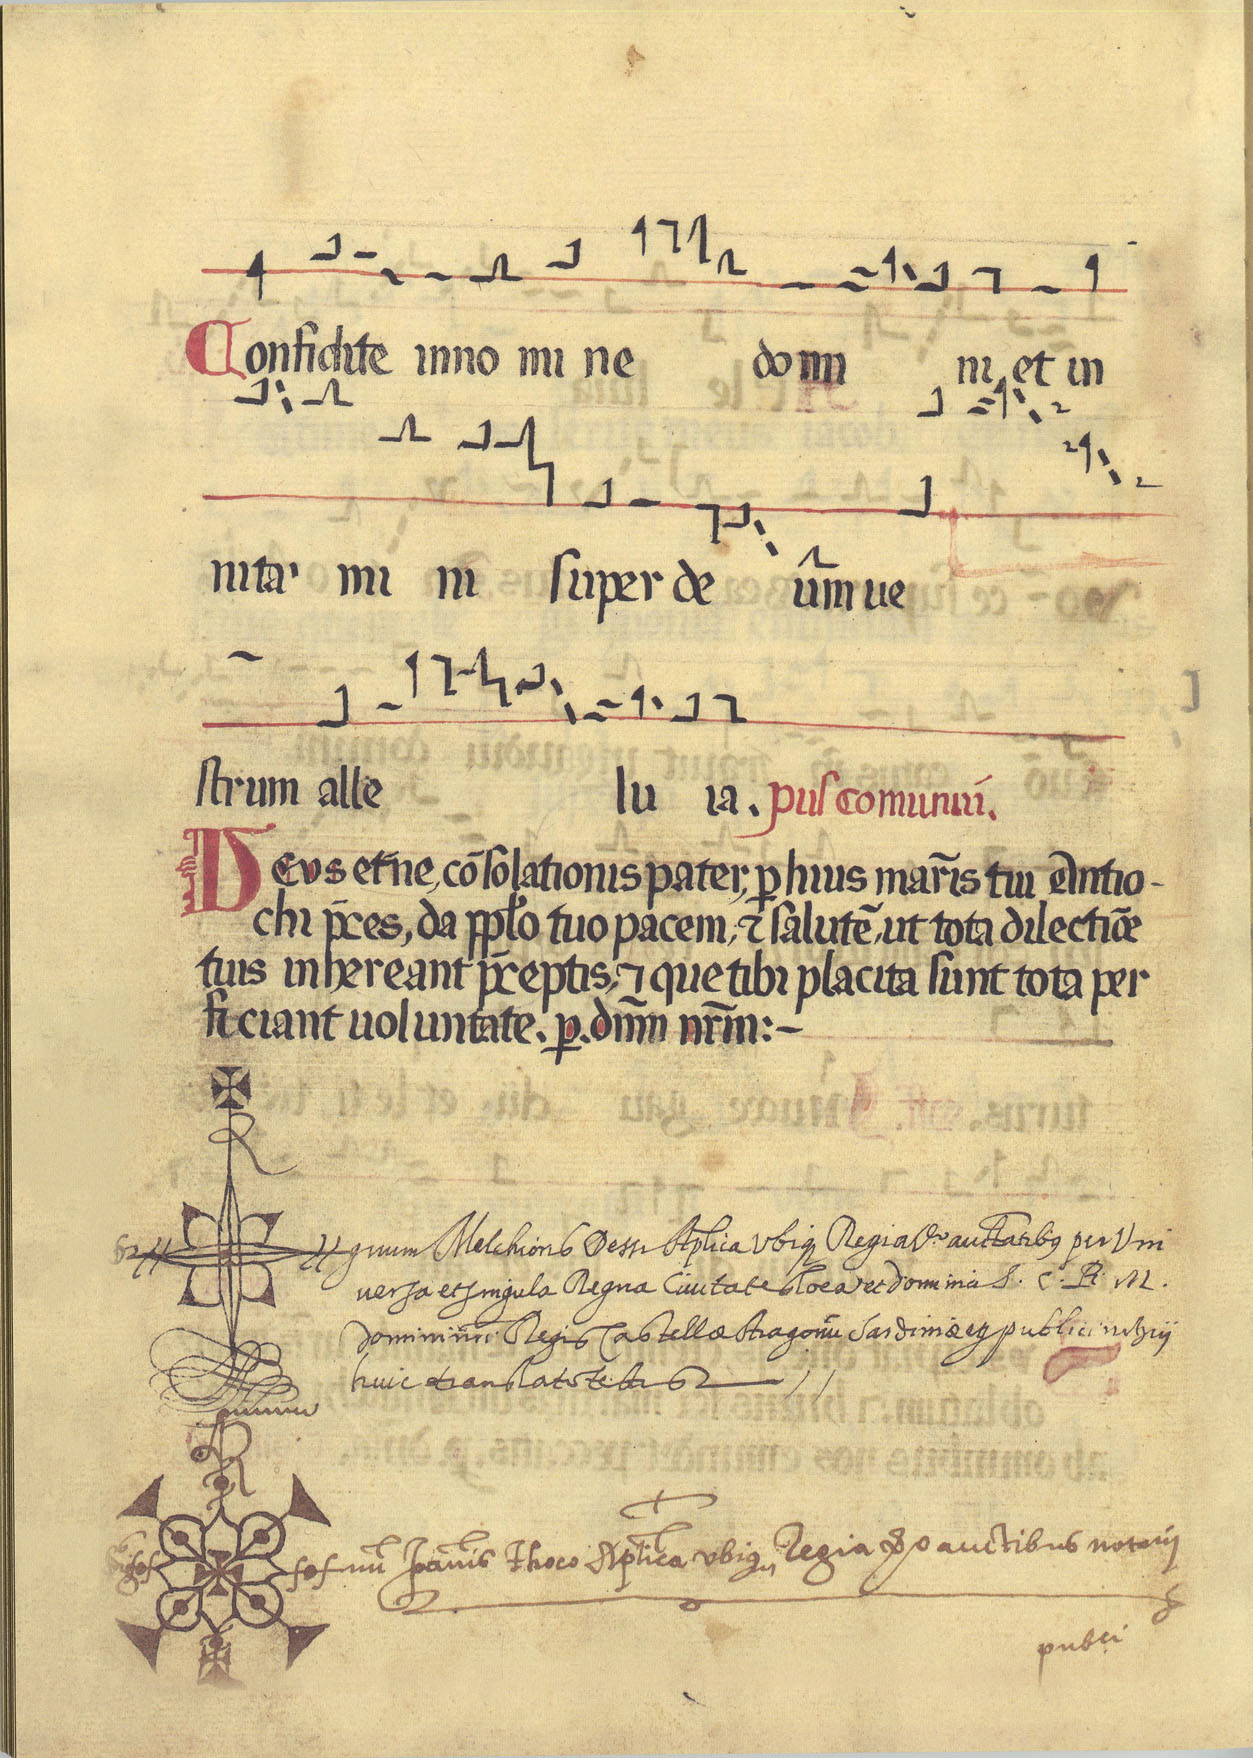 Confidite inno mi ne domi ni et in
nita mi ni super de um̄ ue
strum alle lu ia. pus comunui.
Deus et̄ne, cōsolationis pater, ꝑ huius mar̄is tui Antio-
chi p̄ces, da pp̄lo tuo pacem, ⁊ salutē, ut tota dilectiōe
tuis inhereant p̄ceptis, ⁊ que tibi placita sunt tota per
ficiant uoluntate. p. dn̄m nr̄m:-
gnum Melchioris Dessi Aplica ubiqꝫ Regia autatibꝫ per Uni
versa et singula Regna Civitates loca et dominia S. C. R. M.
domini nri Regis Castellæ Aragonū Sardiniæqꝫ publici notarij
huic
num Joannis Thoco Aplica ubiqꝫ Regia auctibus notarij
publci